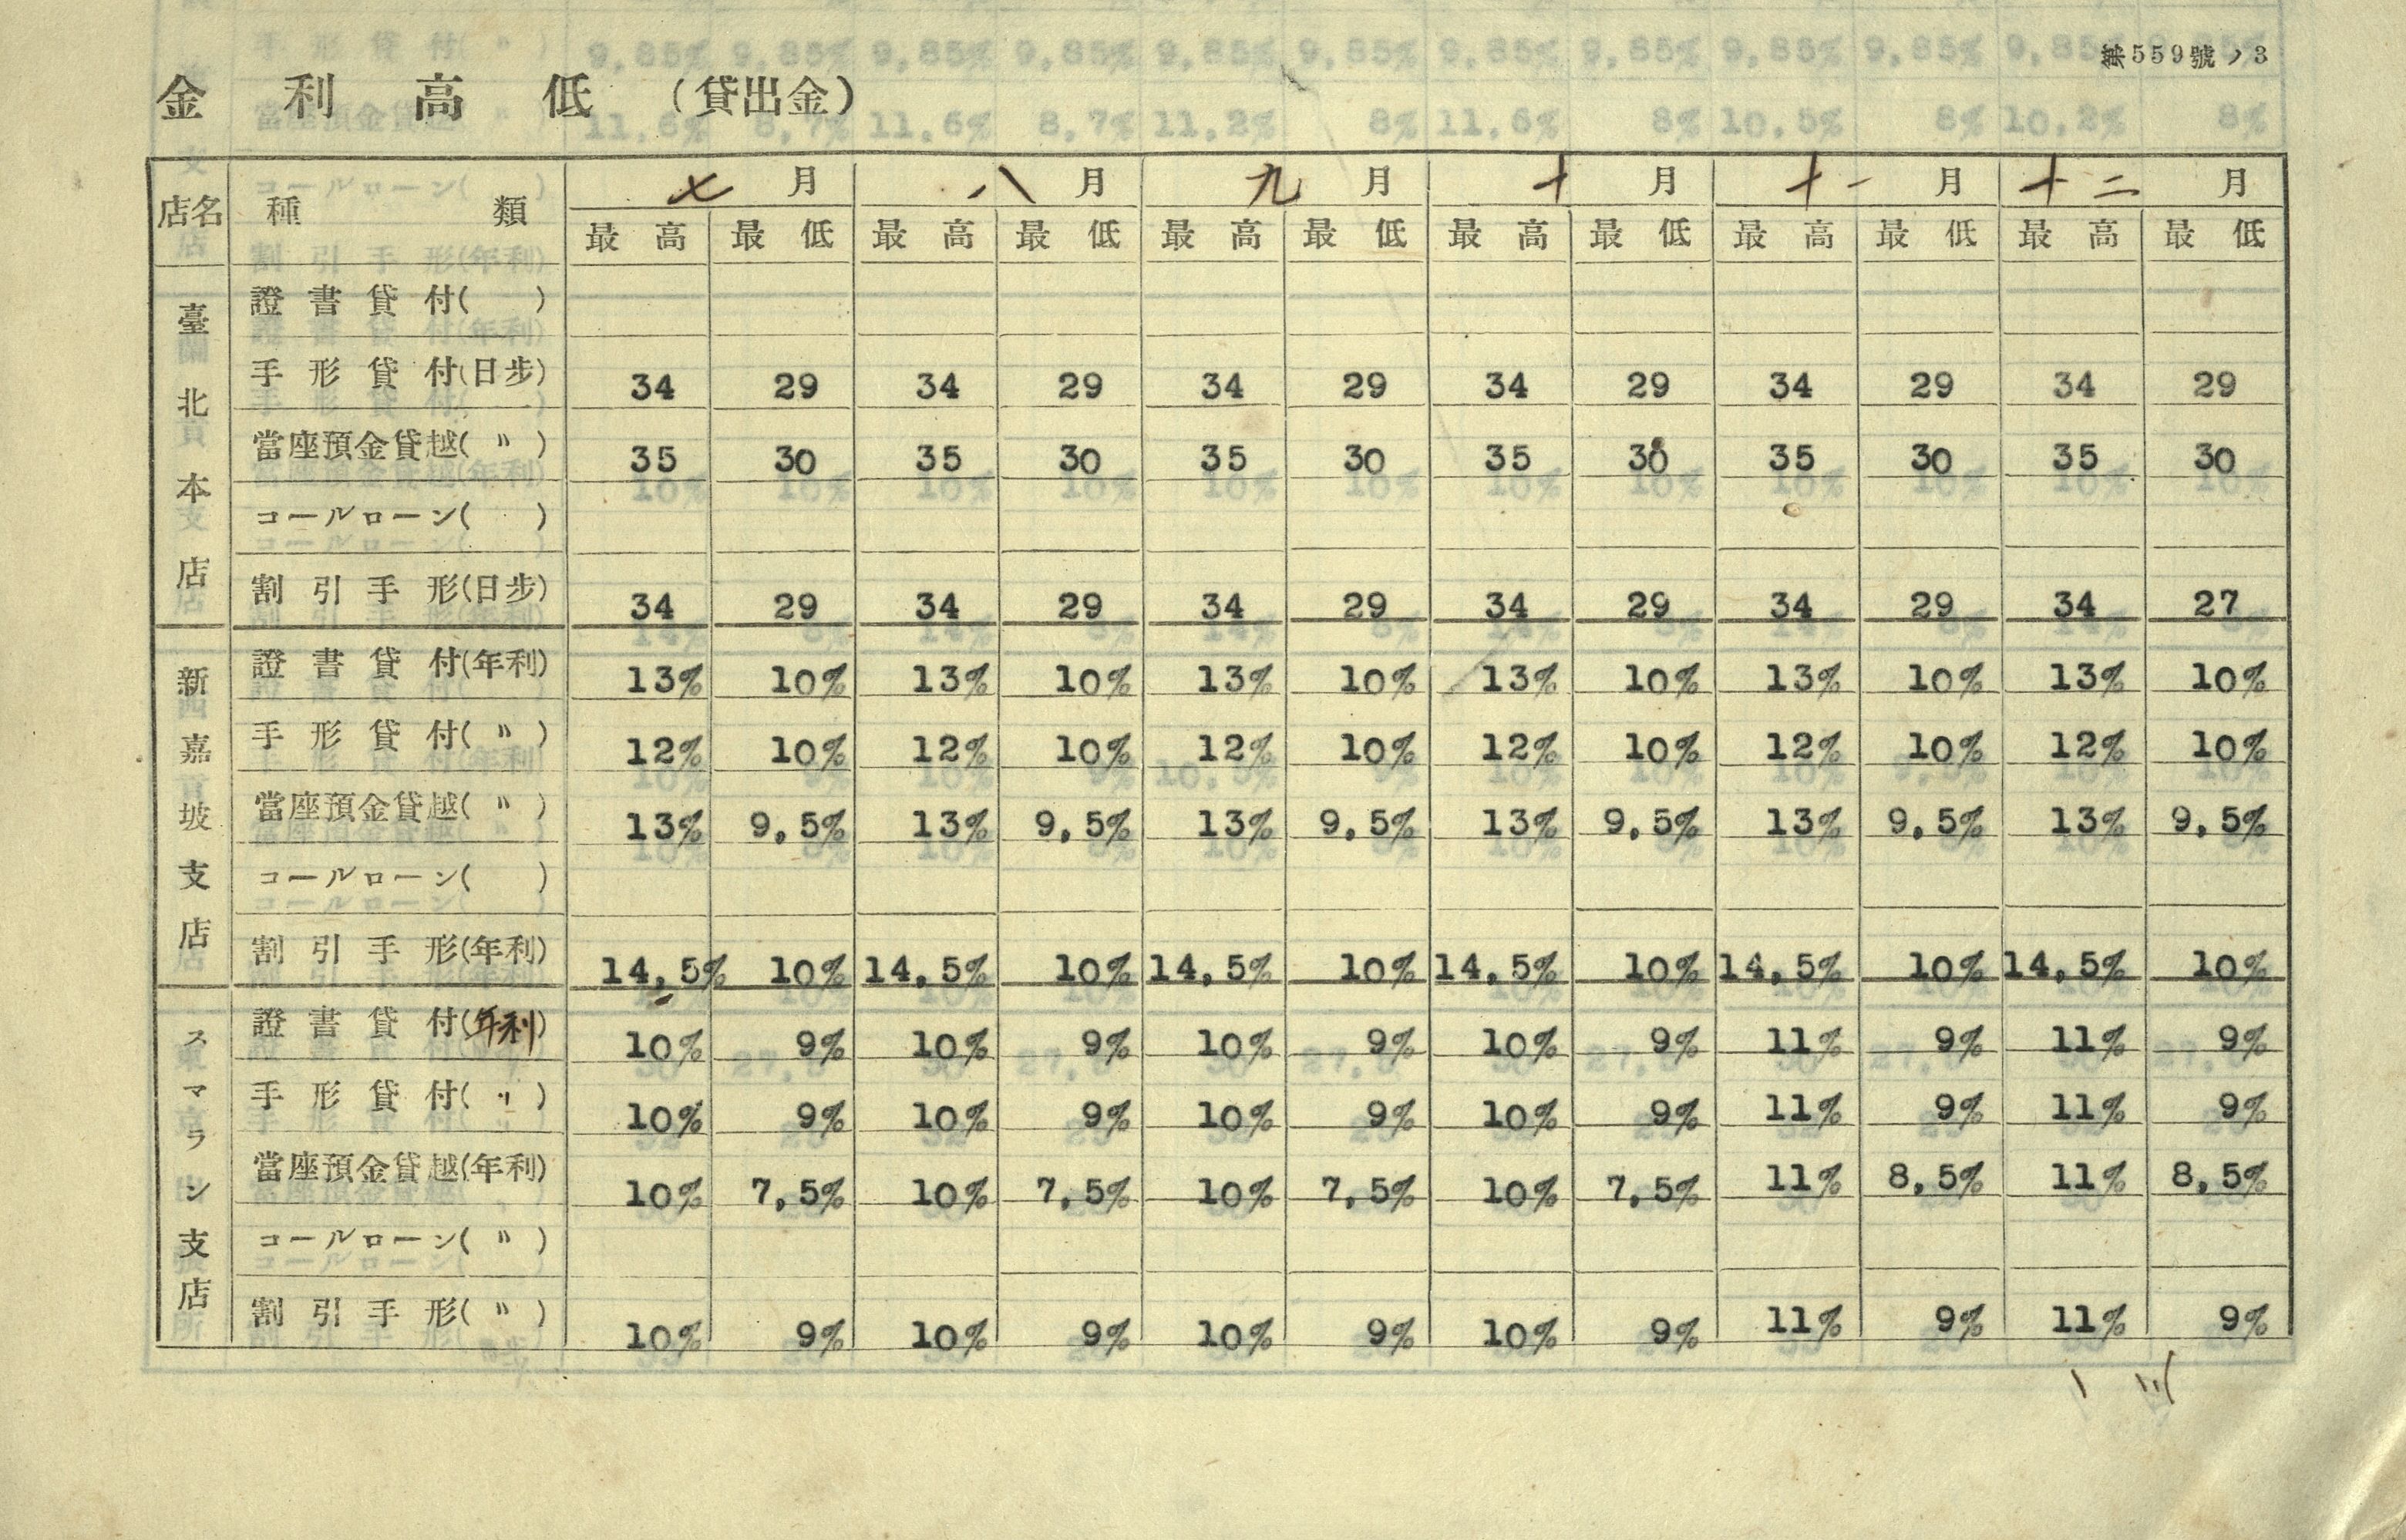 第559號ノ3
金利高低（貸出金）
店名 種類 七月 八月 九月 十月 十一月 十二月
最高 最低 最高 最低 最高 最低 最高 最低 最高 最低 最高 最低
臺北本店
證書貸付(　)
手形貸付(日步) 34 29 34 29 34 29 34 29 34 29 34 29
當座預金貸越(〃) 35 30 35 30 35 30 35 30 35 30 35 30
コールローン(　)
割引手形(日步) 34 29 34 29 34 29 34 29 34 29 34 27
新嘉坡支店
證書貸付(年利) 13% 10% 13% 10% 13% 10% 13% 10% 13% 10% 13% 10%
手形貸付(〃) 12% 10% 12% 10% 12% 10% 12% 10% 12% 10% 12% 10%
當座預金貸越(〃) 13% 9,5% 13% 9,5% 13% 9,5% 13% 9,5% 13% 9,5% 13% 9,5%
コールローン(　)
割引手形(年利) 14,5% 10% 14,5% 10% 14,5% 10% 14,5% 10% 14,5% 10% 14,5% 10%
スマラン支店
證書貸付(年利) 10% 9% 10% 9% 10% 9% 10% 9% 11% 9% 11% 9%
手形貸付(〃) 10% 9% 10% 9% 10% 9% 10% 9% 11% 9% 11% 9%
當座預金貸越(年利) 10% 7,5% 10% 7,5% 10% 7,5% 10% 7,5% 11% 8,5% 11% 8,5%
コールローン(〃)
割引手形(〃) 10% 9% 10% 9% 10% 9% 10% 9% 11% 9% 11% 9%